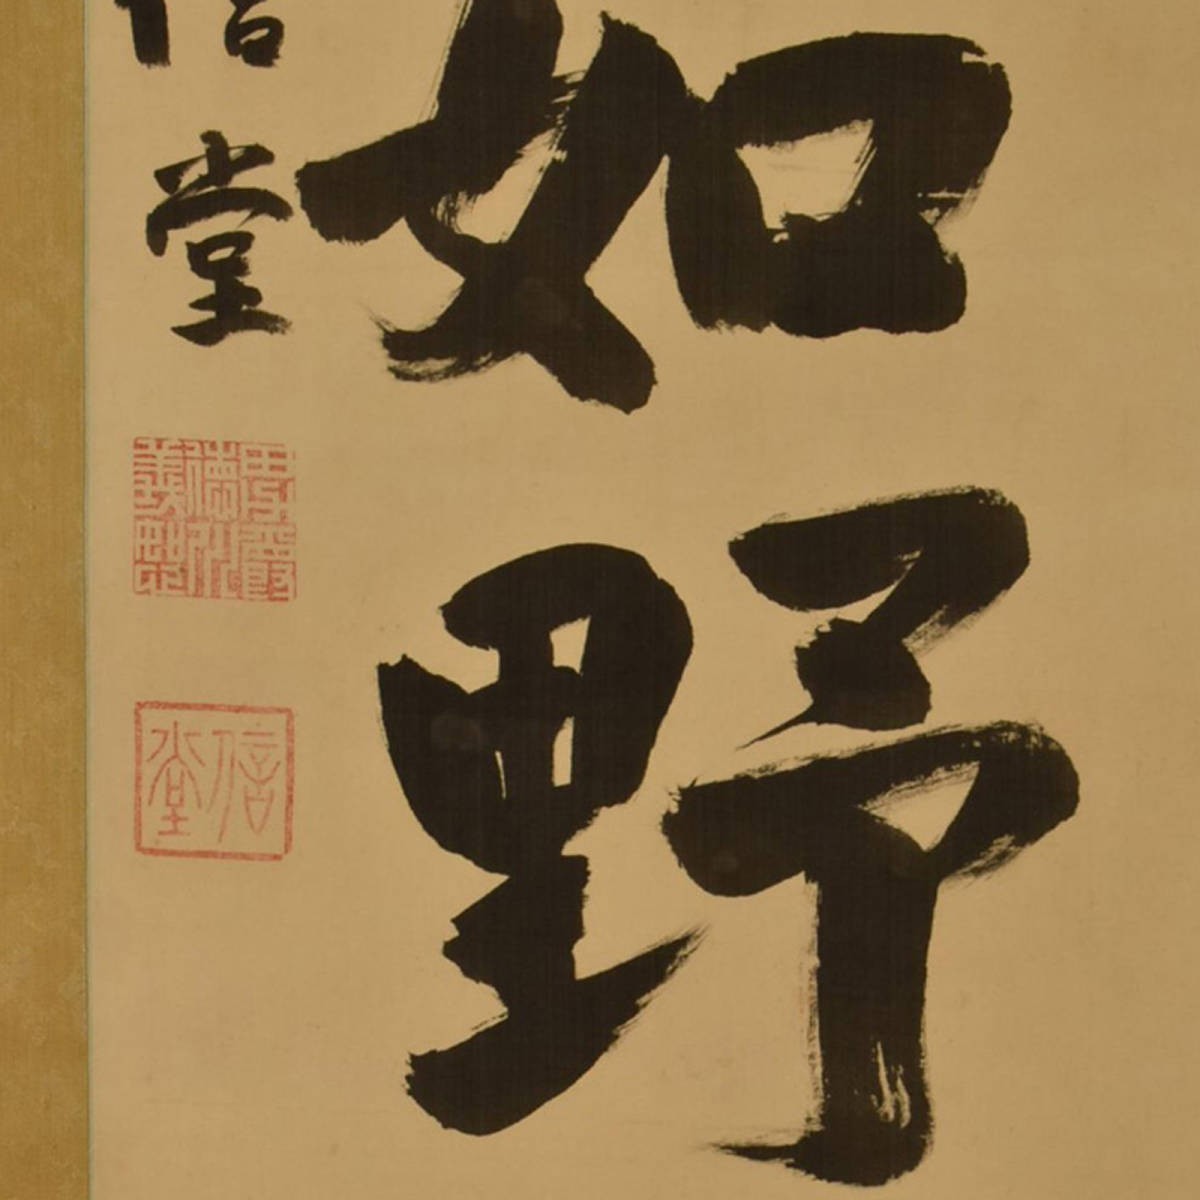 如野
信堂
信堂